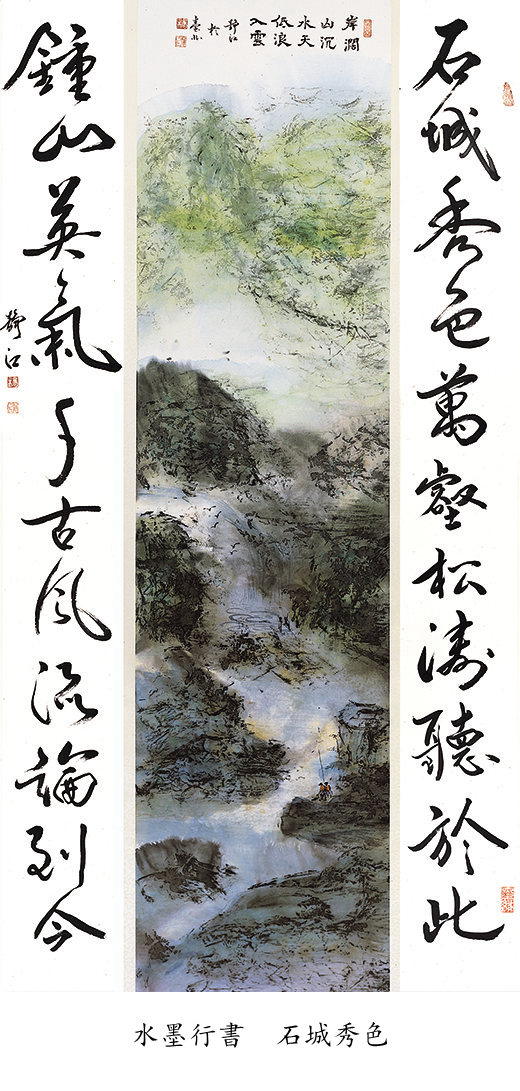 石城秀色萬壑松濤聽於此
岸濶
山沉
水天
低浪
入雲
靜江
於
臺北
鍾山英氣千古風流論到今
靜江
水墨行書　石城秀色